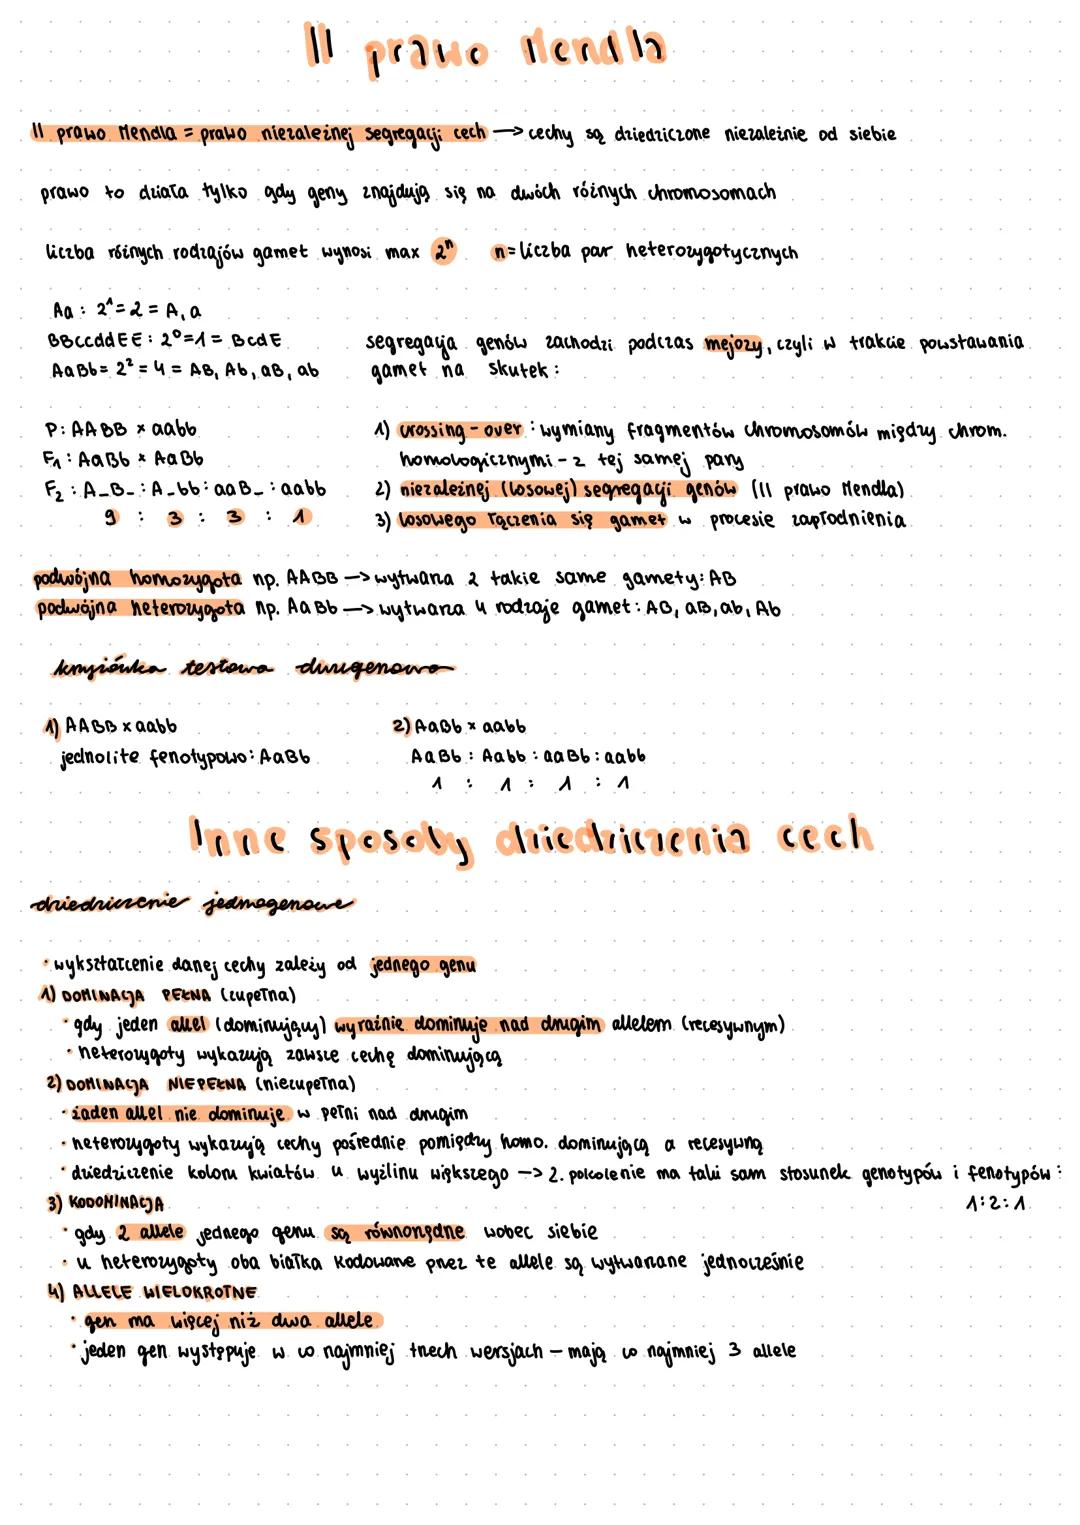 II prawo Mendla
II prawo Mendla = prawo niezależnej segregacji cech → cechy są dziedziczone niezależnie od siebie
prawo to działa tylko gdy geny znajdują się na dwóch różnych chromosomach
liczba różnych rodzajów gamet wynosi max 2ⁿ n = liczba par heterozygotycznych
Aa : 2¹ = 2 = A, a
BBccddEE : 2⁰ = 1 = BcdE
AaBb = 2² = 4 = AB, Ab, aB, ab
segregacja genów zachodzi podczas mejozy, czyli w trakcie powstawania
gamet na skutek :
P: AABB × aabb
F₁ : AaBb × AaBb
F₂ : A_B_ : A_bb : aaB_ : aabb
9 : 3 : 3 : 1
1) crossing-over : wymiany fragmentów chromosomów między chrom.
homologicznymi - z tej samej pary
2) niezależnej (losowej) segregacji genów (II prawo Mendla)
3) losowego łączenia się gamet w procesie zapłodnienia
podwójna homozygota np. AABB → wytwarza 2 takie same gamety: AB
podwójna heterozygota np. AaBb → wytwarza 4 rodzaje gamet : AB, aB, ab, Ab
krzyżówka testowa dwugenowa
1) AABB × aabb
jednolite fenotypowo: AaBb
2) AaBb × aabb
AaBb : Aabb : aaBb : aabb
1 : 1 : 1 : 1
Inne sposoby dziedziczenia cech
dziedziczenie jednogenowe
• wykształcenie danej cechy zależy od jednego genu
1) DOMINACJA PEŁNA (zupełna)
• gdy jeden allel (dominujący) wyraźnie dominuje nad drugim allelem (recesywnym)
• heterozygoty wykazują zawsze cechę dominującą
2) DOMINACJA NIEPEŁNA (niezupełna)
• żaden allel nie dominuje w pełni nad drugim
• heterozygoty wykazują cechy pośrednie pomiędzy homo. dominującą a recesywną
• dziedziczenie koloru kwiatów u wyżlinu większego → 2. pokolenie ma taki sam stosunek genotypów i fenotypów :
1:2:1
3) KODOMINACJA
• gdy 2 allele jednego genu są równorzędne wobec siebie
• u heterozygoty oba białka kodowane przez te allele są wytwarzane jednocześnie
4) ALLELE WIELOKROTNE
• gen ma więcej niż dwa allele
• jeden gen występuje w co najmniej trzech wersjach – mają co najmniej 3 allele